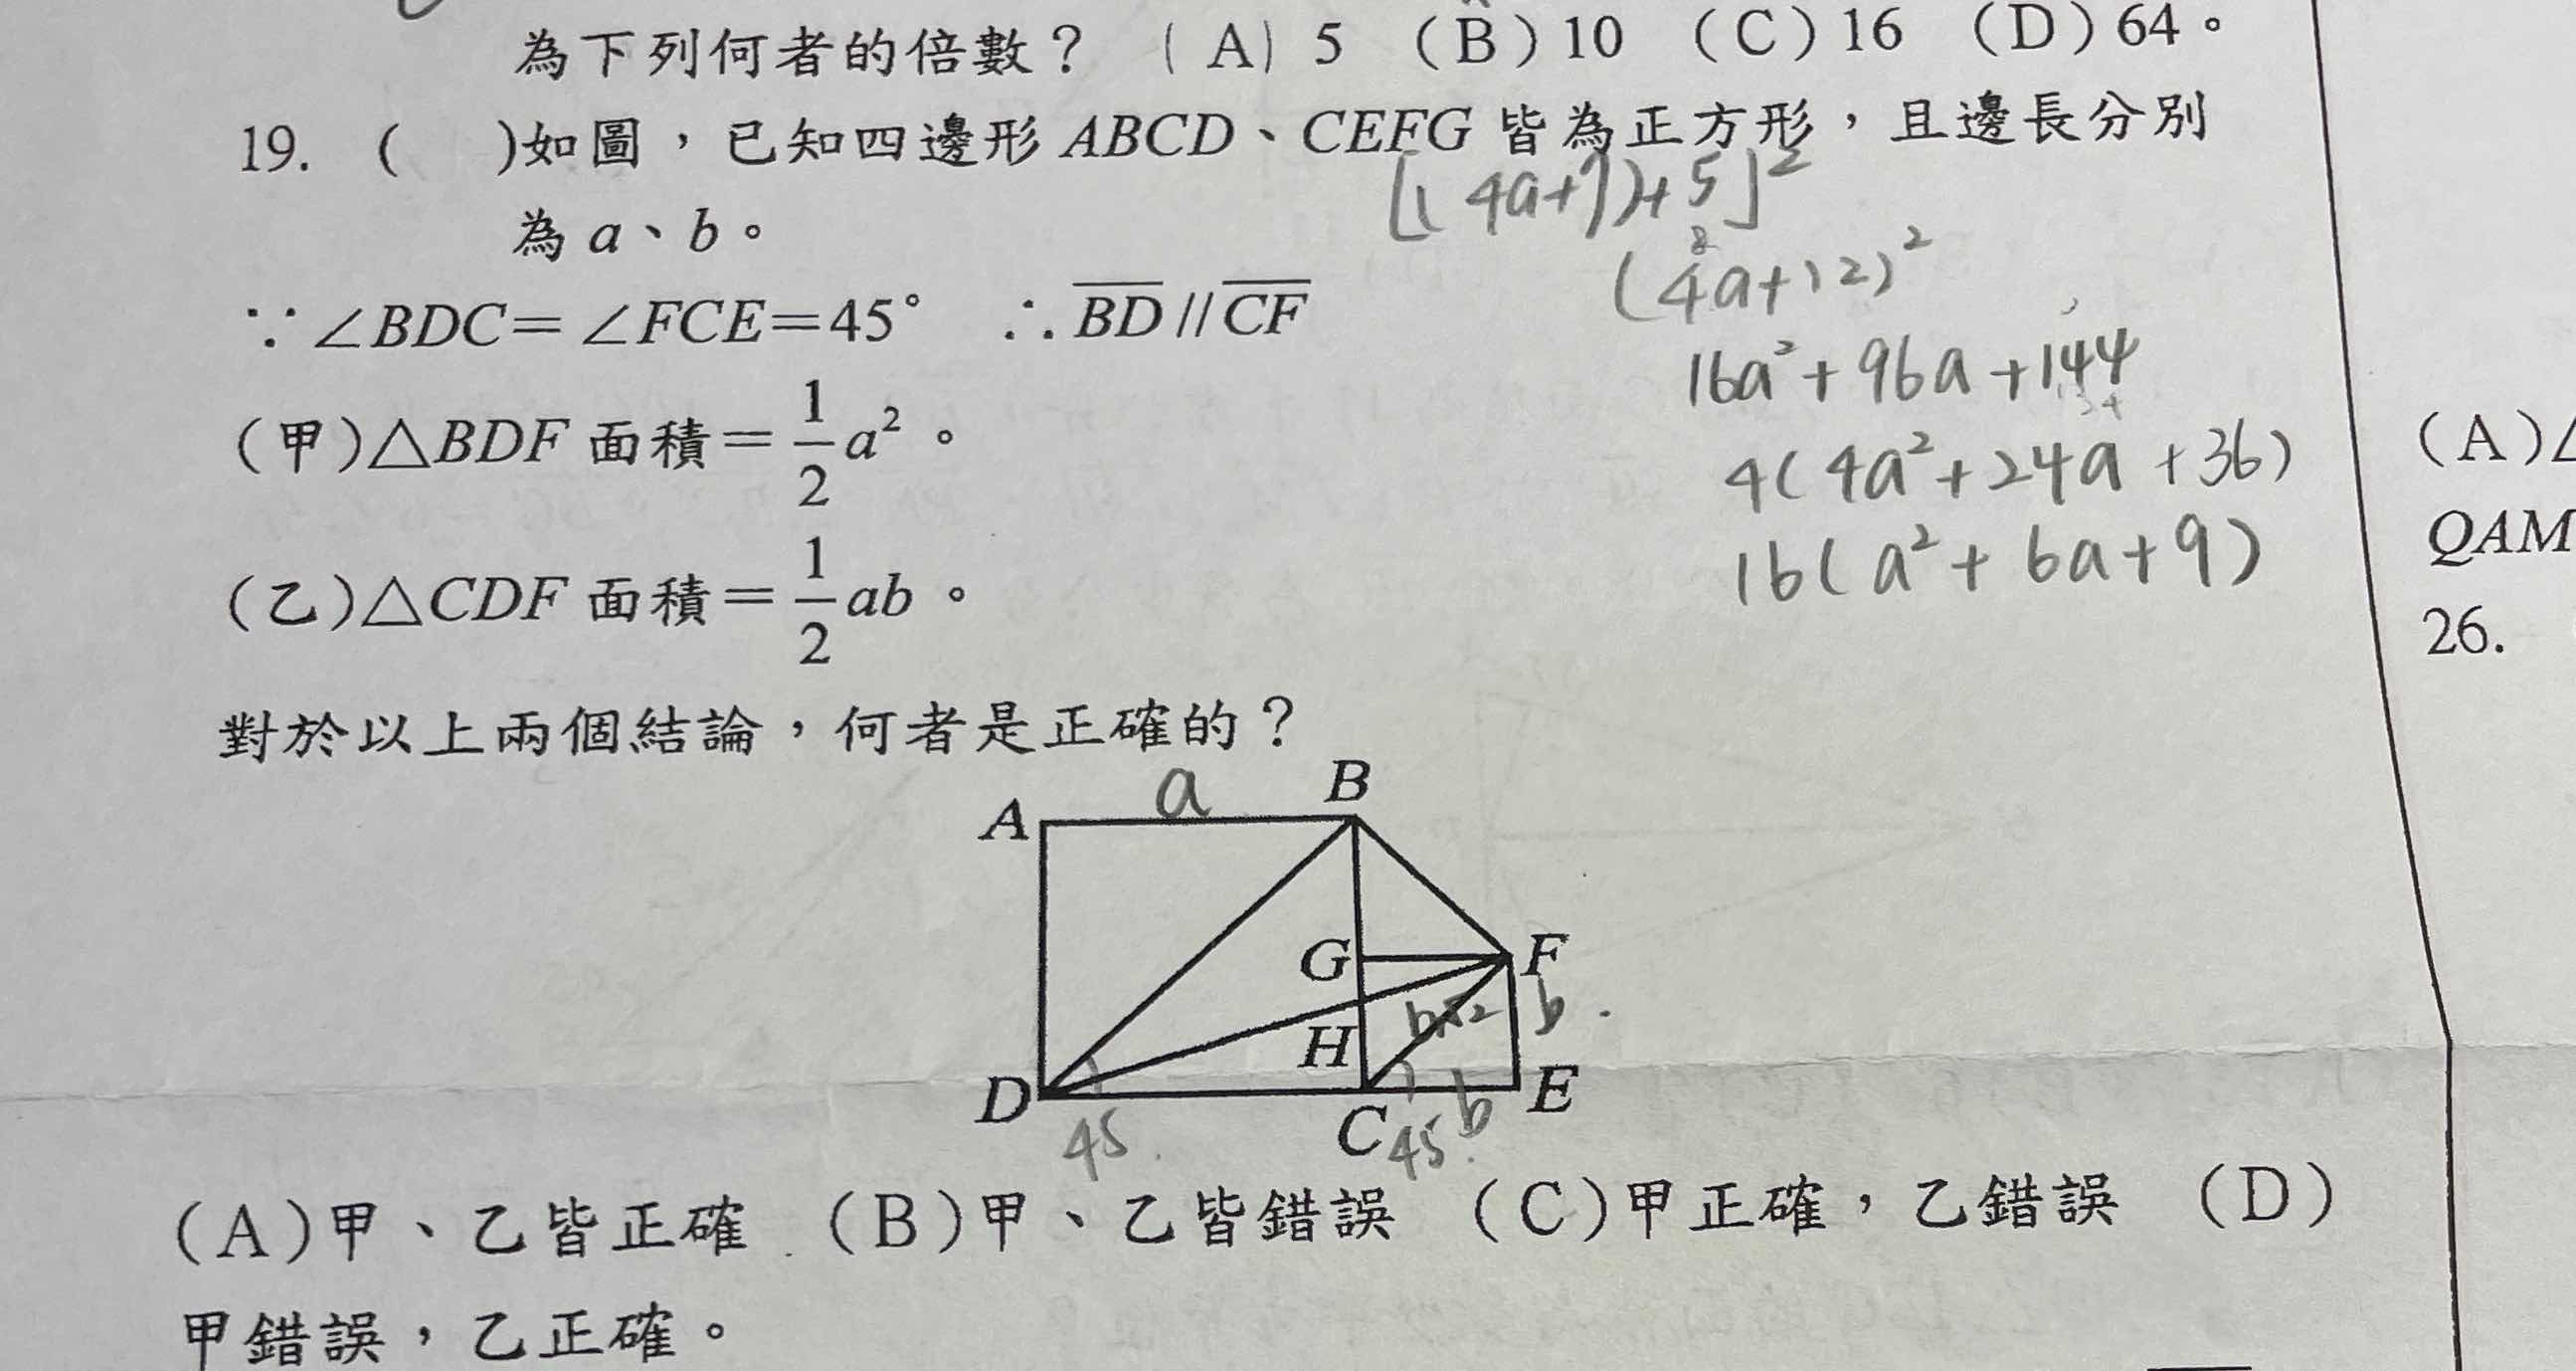 為下列何者的倍數？ (A) 5 (B) 10 (C) 16 (D) 64。
19. ( )如圖，已知四邊形 ABCD、CEFG 皆為正方形，且邊長分別
為 a、b。
[(4a+7)+5]²
(4a+12)²
∵∠BDC=∠FCE=45° ∴BD//CF
16a²+96a+144
(甲)△BDF 面積=1/2 a²。
4(4a²+24a+36)
(A)
QAM
16(a²+6a+9)
(乙)△CDF 面積=1/2 ab。
26.
對於以上兩個結論，何者是正確的？
a
A B
G F
b√2 b
H
D C E
45 45 b
(A)甲、乙皆正確 (B)甲、乙皆錯誤 (C)甲正確，乙錯誤 (D)
甲錯誤，乙正確。